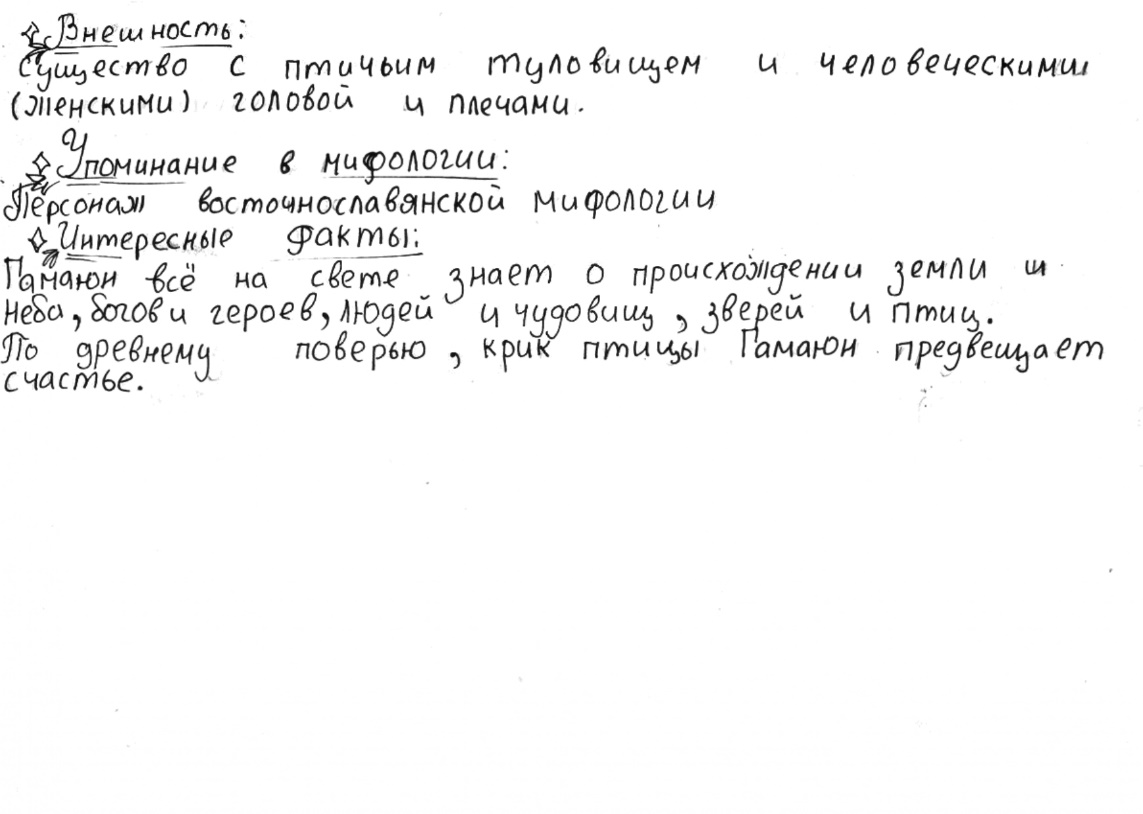 Внешность:
Существо с птичьим туловищем и человеческими
(женскими) головой и плечами.
Упоминание в мифологии:
Персонаж восточнославянской мифологии
Интересные факты:
Гамаюн всё на свете знает о происхождении земли и
неба, богов и героев, людей и чудовищ, зверей и птиц.
По древнему поверью, крик птицы Гамаюн предвещает
счастье.